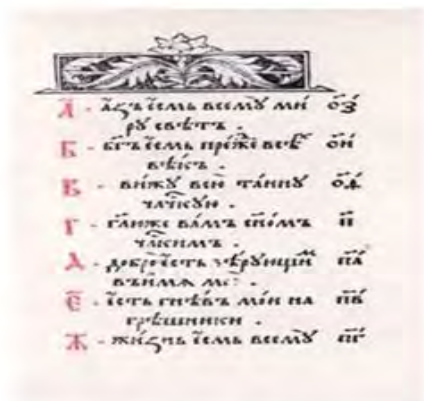 А҃ - а҆́зъ є҆́смь всемꙋ̀ ми́ о҃з
рꙋ свѣ́тъ .
Б - бг҃ъ є҆́смь пре́жⷣе всѣⷯ о҃и
вѣ́къ .
В - ви́жꙋ всю̀ та́инꙋ о҃ѳ
чл҃чкꙋю .
Г - гл҃юже ва́мъ сн҃о́мъ п҃
чл҃чкимъ .
Д - добро̀ є҆́сть вѣ́рꙋющиⷨ п҃а
въи́мѧ .
Є҃ - є҆́сть гнѣ́въ мо́и на п҃в
грѣ́шники .
Ж - жи́знь є҆́смь всемꙋ̀ п҃г